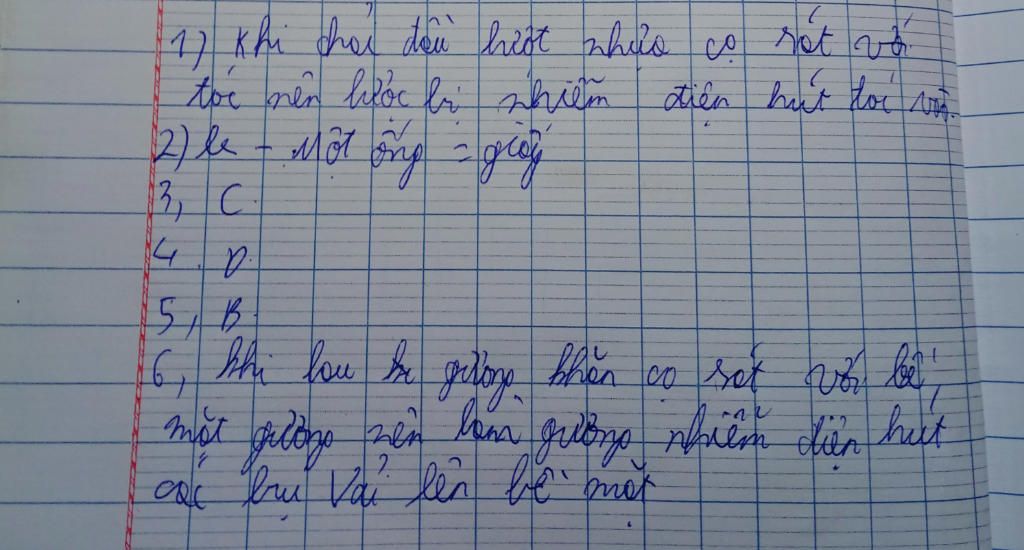 1) Khi chải đầu lược nhựa cọ sát với
tóc nên lược bị nhiễm điện hút tóc vào.
2) - Một ống = giấy
3, C.
4. D.
5, B.
6, khi lau gương khăn cọ sát với bề,
mặt gương nên làm gương nhiễm điện hút
các bụi vải lên bề mặt